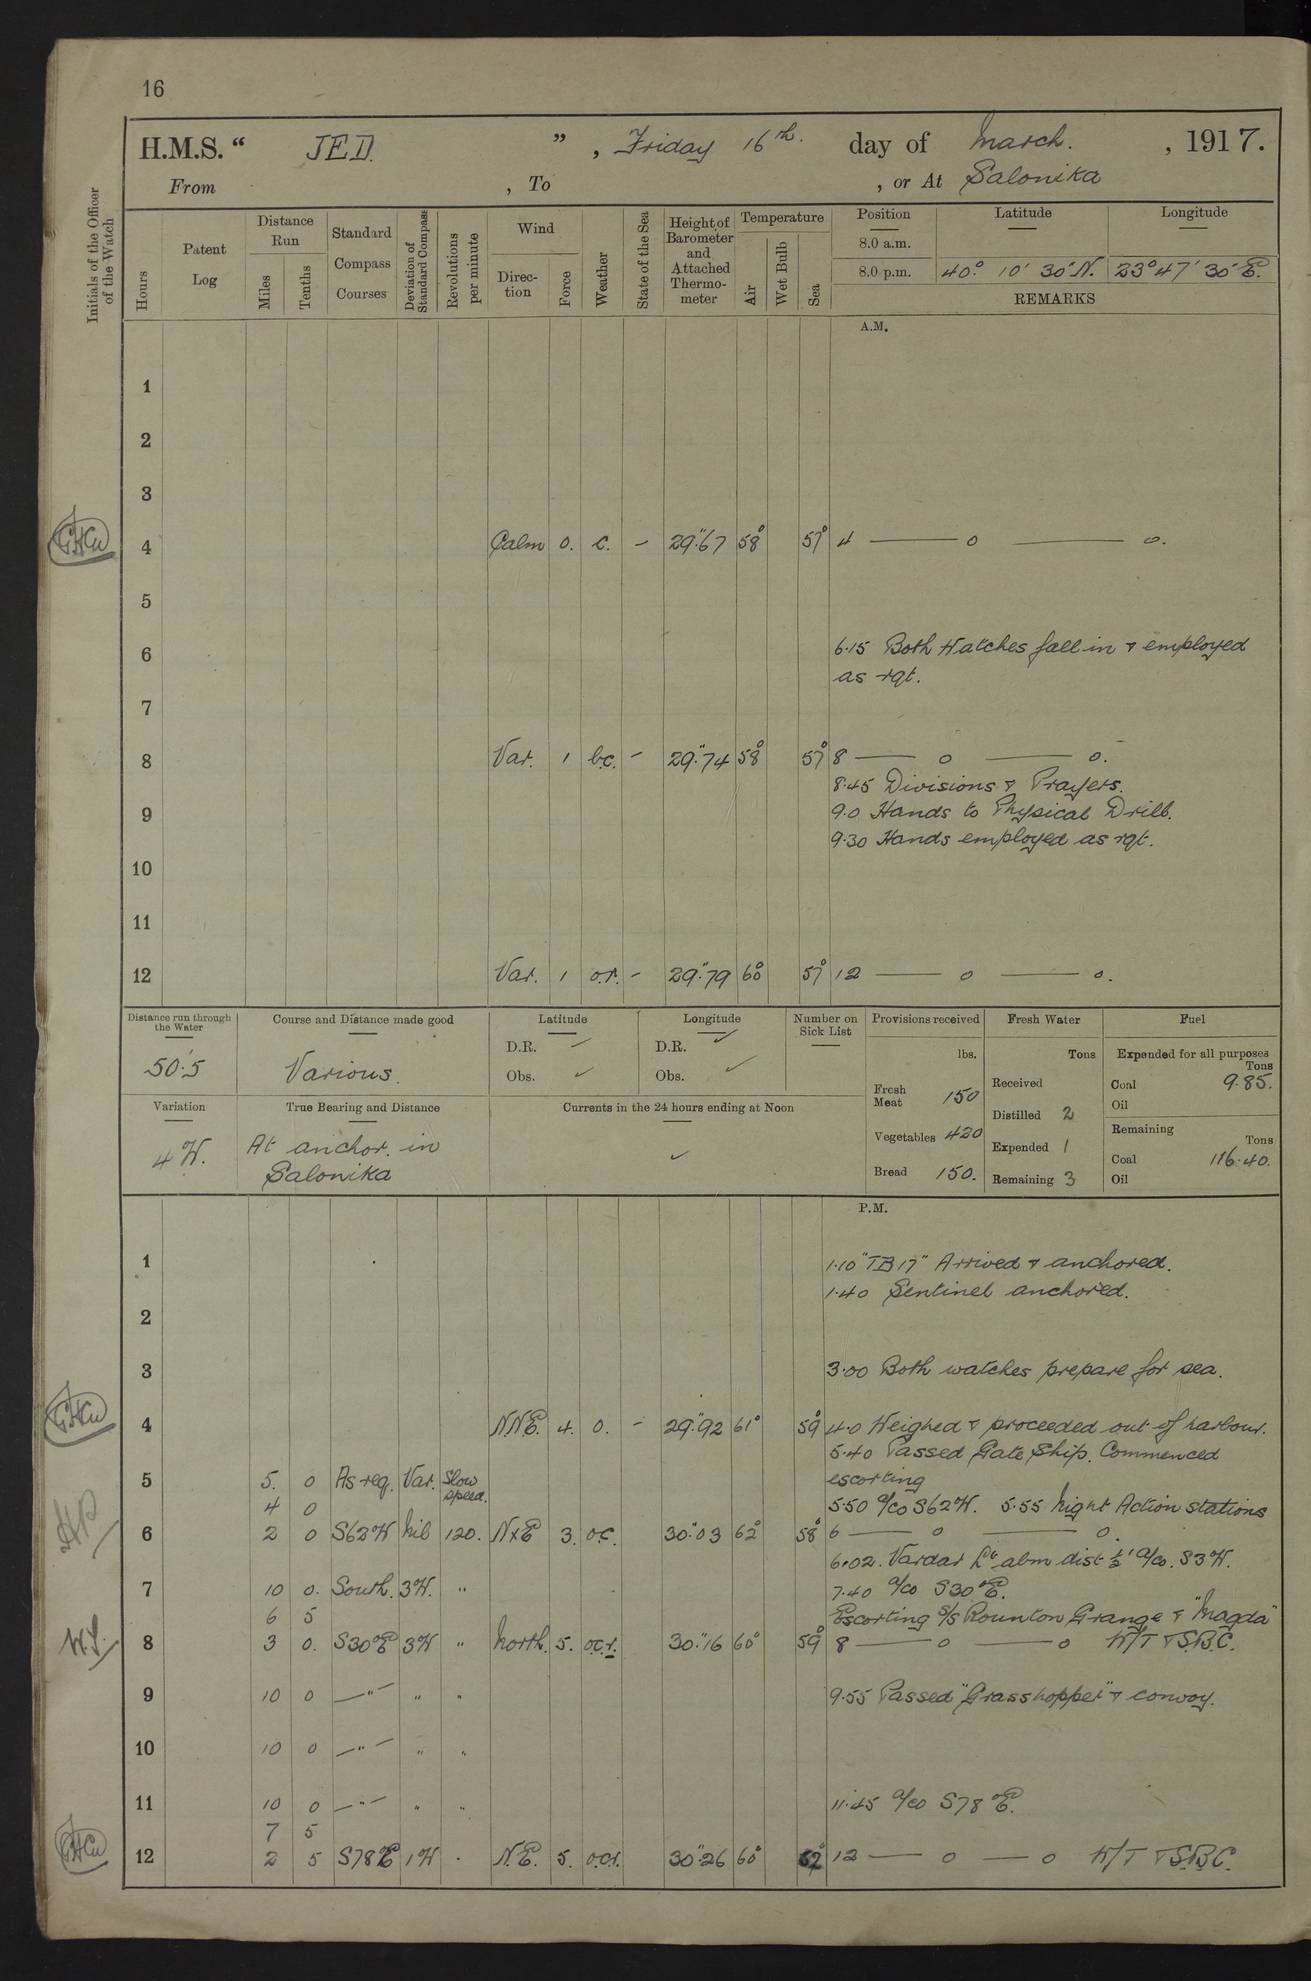 16
H.M.S. “ JED. ” , Friday 16th. day of March. , 1917.
From , To , or At Salonika
Initials of the Officer of the Watch
Hours
Patent Log
Distance Run
Miles
Tenths
Standard Compass Courses
Deviation of Standard Compass
Revolutions per minute
Wind
Direction
Force
Weather
State of the Sea
Height of Barometer and Attached Thermometer
Temperature
Air
Wet Bulb
Sea
Position Latitude Longitude
8.0 a.m.
8.0 p.m. 40° 10' 30" N. 23° 47' 30" E.
REMARKS
A.M.
1
2
3
4 Calm 0. c. - 29".67 58° 57° 4 —— o —— o.
5
6 6.15 Both Watches fall in & employed
as rqt.
7
8 Var. 1 b.c. - 29".74 58° 57° 8 —— o —— o.
8.45 Divisions & Prayers.
9 9.0 Hands to Physical Drill.
9.30 Hands employed as rqt.
10
11
12 Var. 1 o.r. - 29".79 60° 57° 12 —— o —— o.
Distance run through the Water
50'.5
Course and Distance made good
Various.
Latitude
D.R. ✓
Obs. ✓
Longitude
D.R. ✓
Obs. ✓
Number on Sick List
Provisions received
lbs.
Fresh Meat 150
Vegetables 420
Bread 150.
Fresh Water
Tons
Received
Distilled 2
Expended 1
Remaining 3
Fuel
Expended for all purposes
Tons
Coal 9.85.
Oil
Remaining
Tons
Coal 116.40.
Oil
Variation
4 W.
True Bearing and Distance
At anchor. in
Salonika
Currents in the 24 hours ending at Noon
✓
P.M.
1 1.10 "TB 17" Arrived & anchored.
1.40 Sentinel anchored.
2
3 3.00 Both watches prepare for sea.
4 N.N.E. 4. o. - 29".92 61° 59° 4.0 Weighed & proceeded out of harbour.
5.40 Passed Gate Ship. Commenced
5 5. 0 As req. Var. Slow speed. escorting
4 0 5.50 a/co S62W. 5.55 Night Action stations
6 2 0 S62W Nil 120. NxE 3. o.c. 30".03 62° 58° 6 —— o —— o.
6.02. Vardar Lt. abm dist ½' a/co. S3W.
7 10 0. South. 3W. " 7.40 a/co S30°E.
6 5 Escorting S/S Rounton Grange & "Magda"
8 3 0. S30°E 3W " North. 5. o.c.r. 30".16 60° 59° 8 —— o —— o W/T & S.B.C.
9 10 0 —"— " " 9.55 Passed "Grasshopper" & convoy.
10 10 0 —"— " "
11 10 0 —"— " " 11.45 a/co S78°E.
7 5
12 2 5 S78°E 1W . N.E. 5. o.c.r. 30".26 60° 62° 12 —— o —— o W/T & S.B.C.